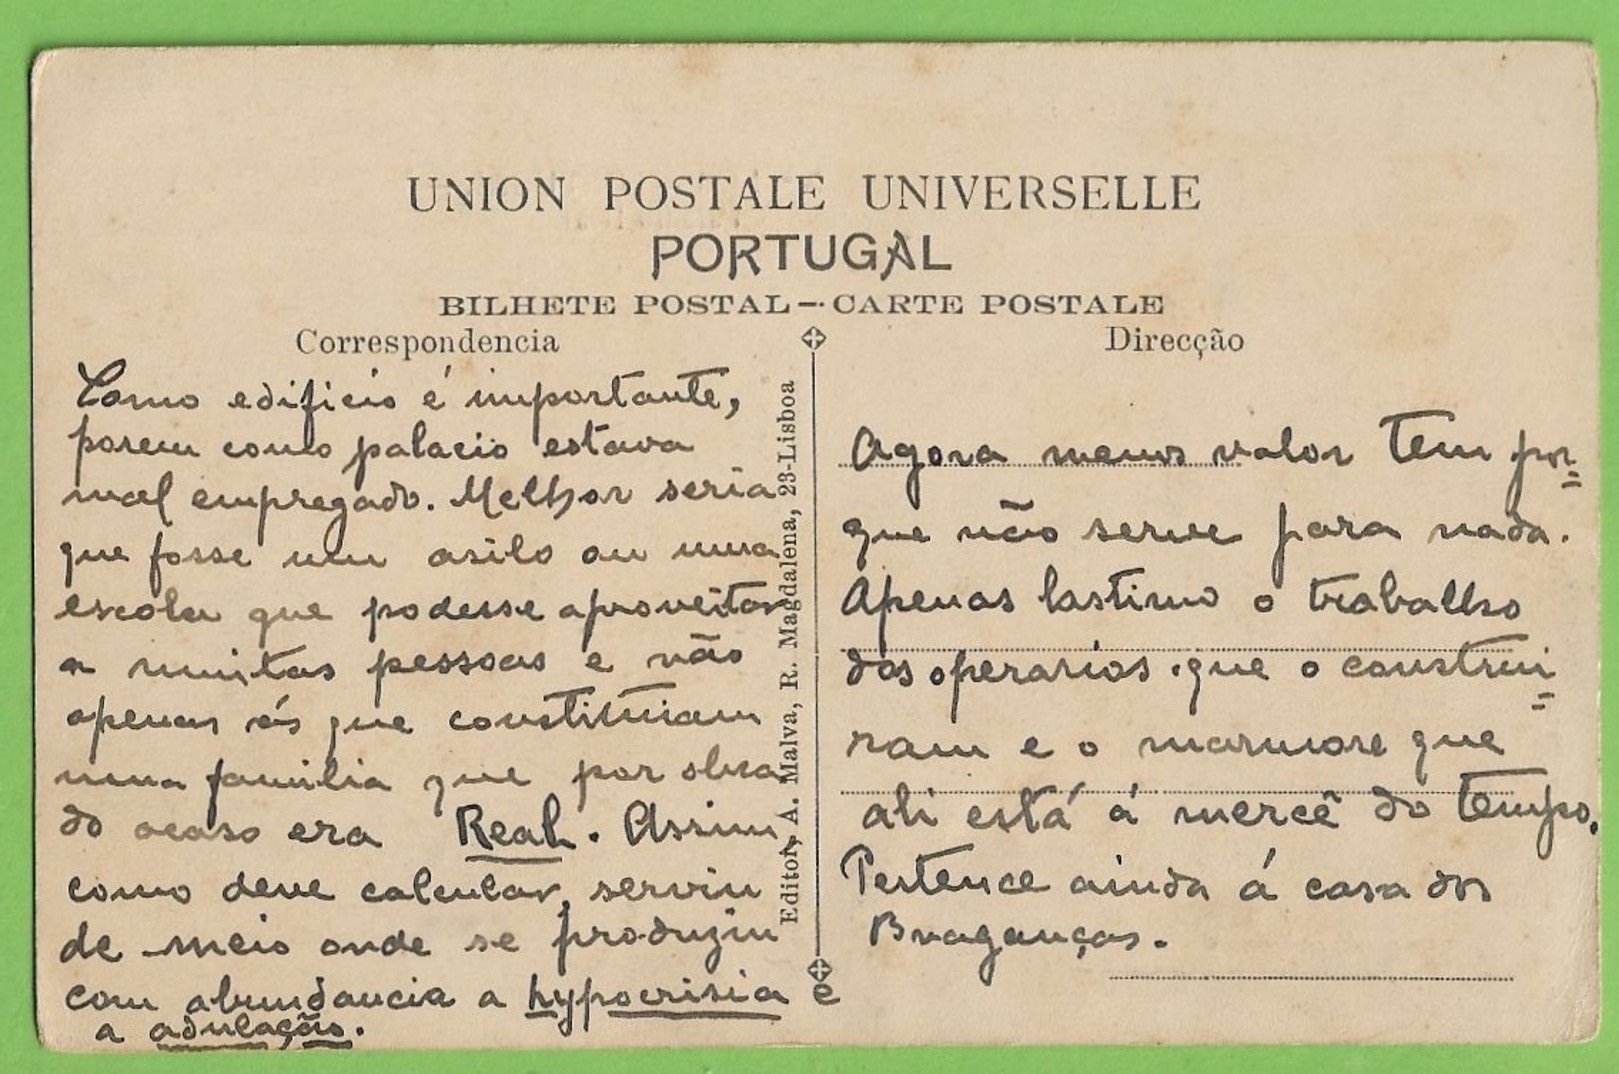 UNION POSTALE UNIVERSELLE
PORTUGAL
BILHETE POSTAL — CARTE POSTALE
Correspondencia
Como edificio é importante,
porem como palacio estava
mal empregado. Melhor seria
que fosse um asilo ou uma
escola que podesse aproveitar
a muitas pessoas e não
apenas ás que constituiam
uma familia que por obra
do acaso era Real. Assim
como deve calcular, serviu
de meio onde se produziu
com abundancia a hypocrisia e
a adulação.
Editor, A. Malva, R. Magdalena, 23-Lisboa
Direcção
Agora menos valor tem por=
que não serve para nada.
Apenas lastimo o trabalho
dos operarios que o construi=
ram e o marmore que
ali está á mercê do tempo.
Pertence ainda á casa dos
Braganças.